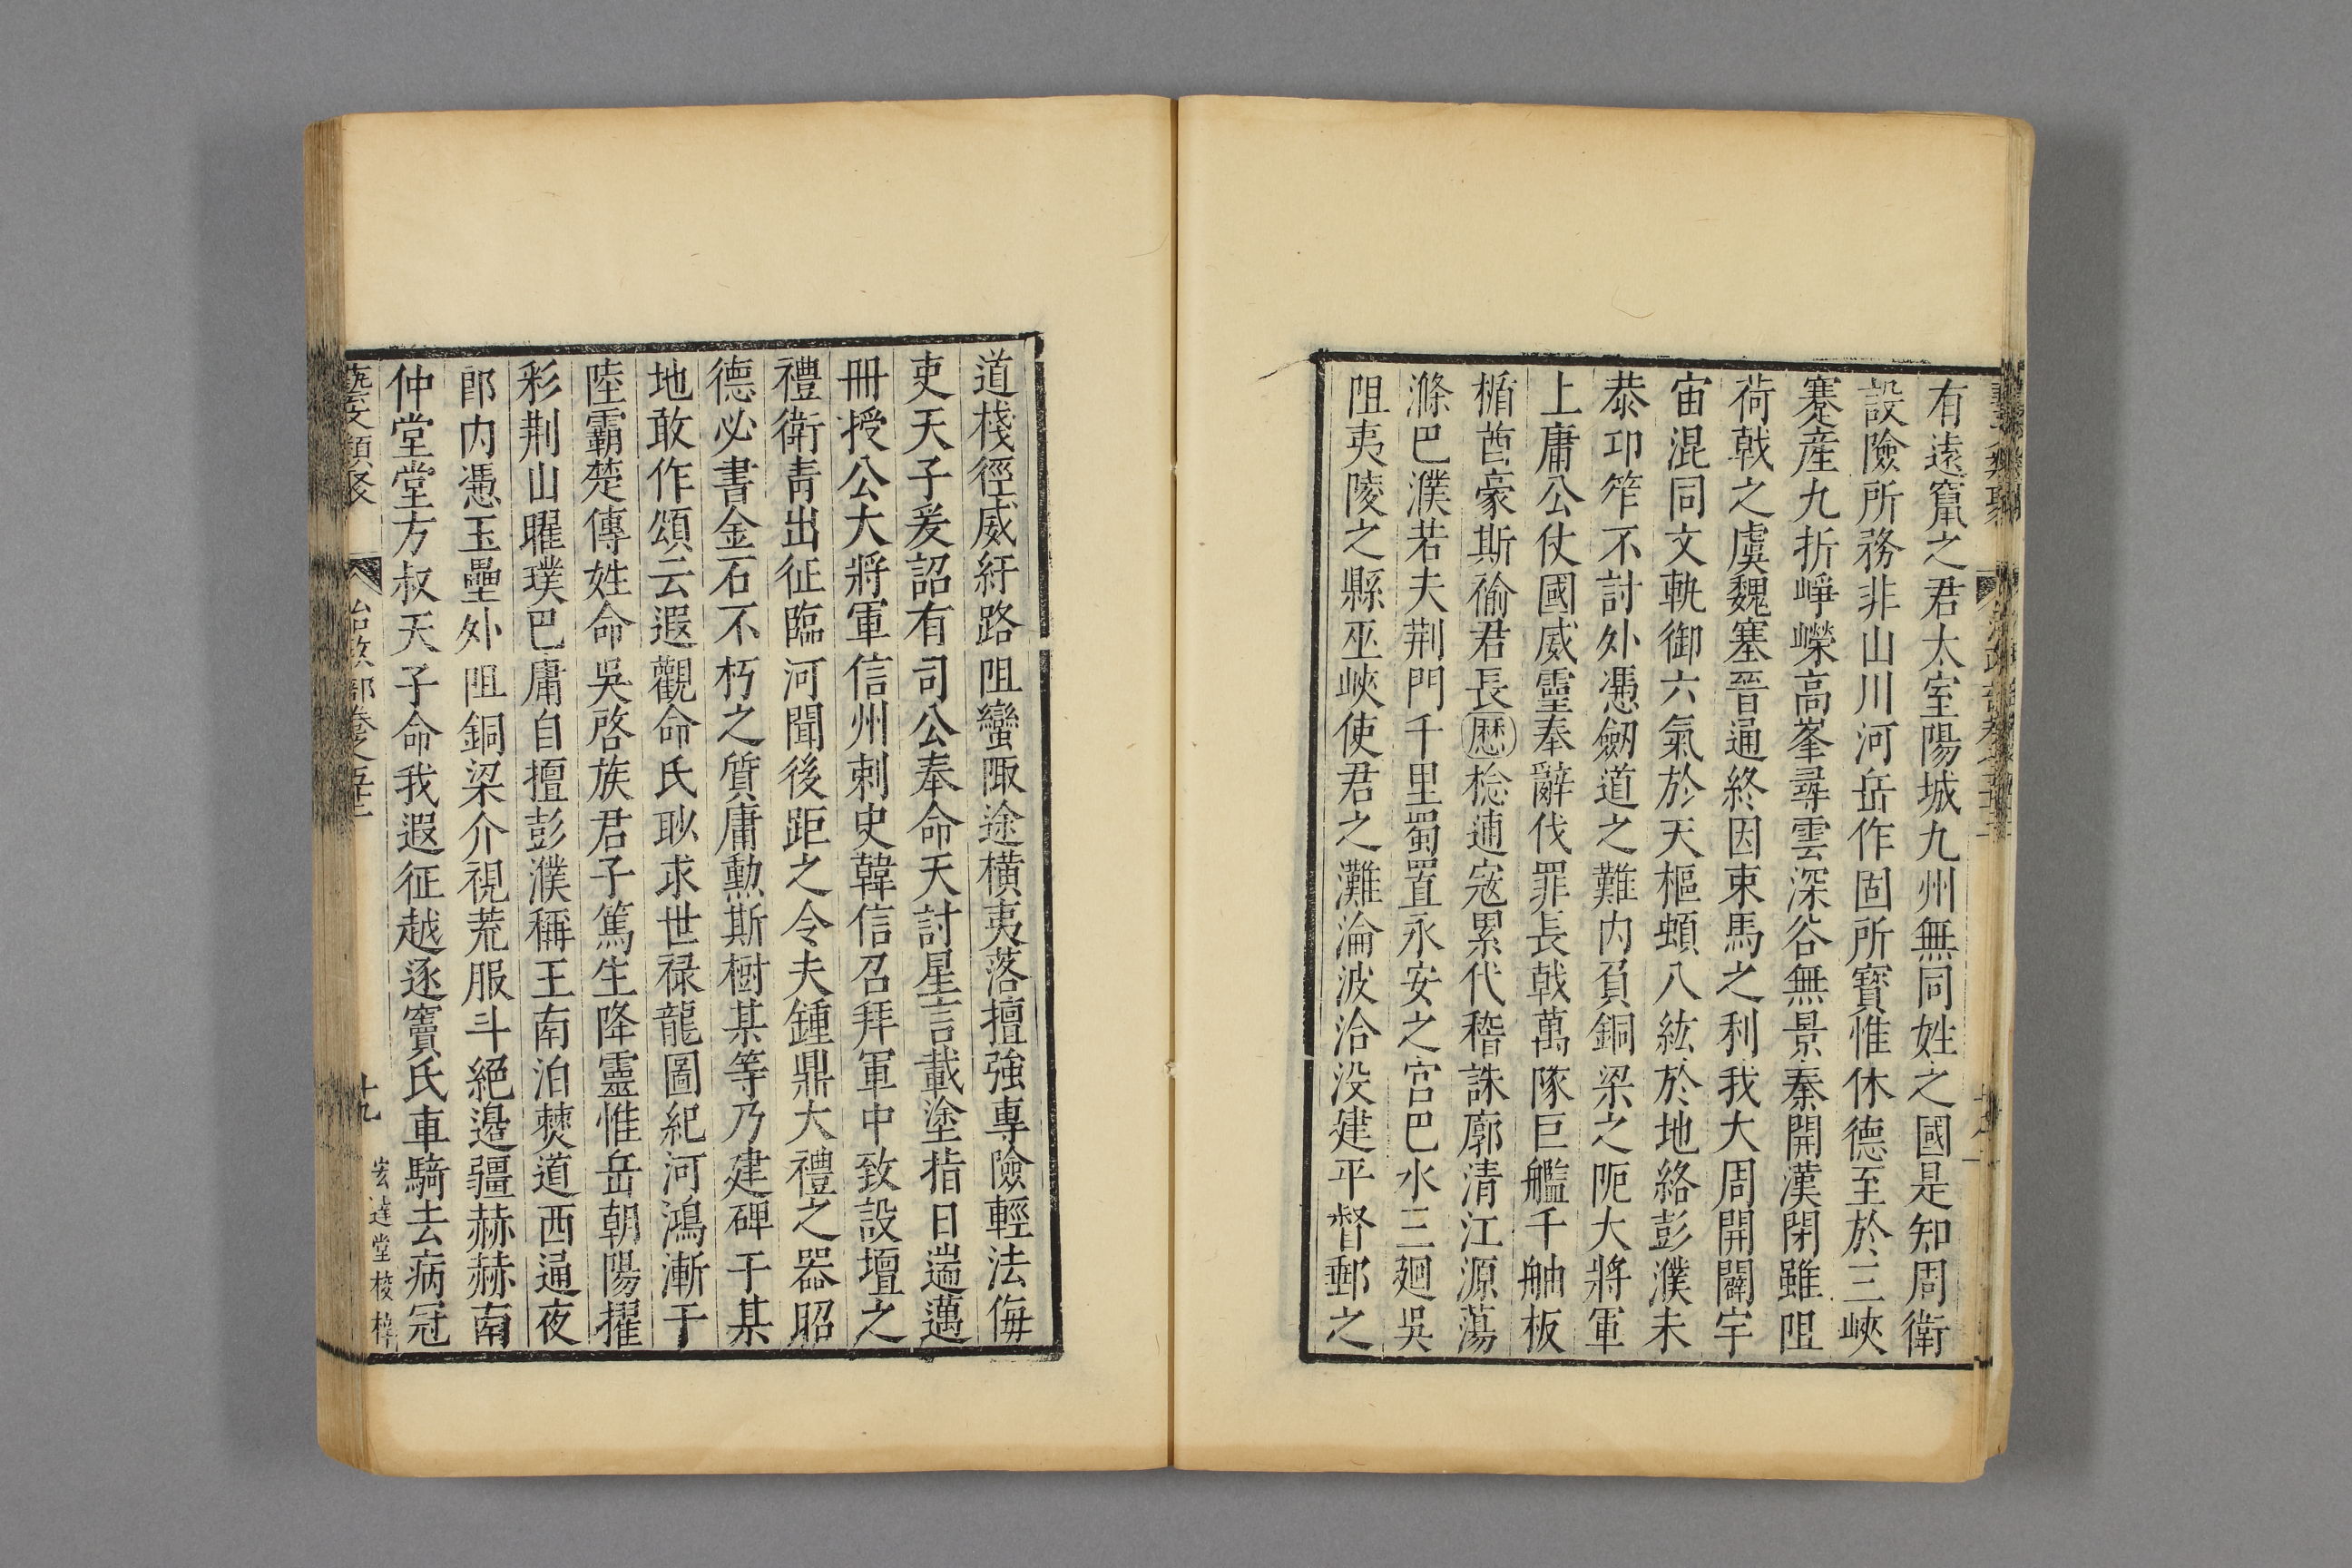 有遠竄之君太室陽城九州無同姓之國是知周衛
設險所務非山川河岳作固所寶惟休德至於三峽
蹇産九折崢嶸高峯尋雲深谷無景秦開漢閉雖阻
荷戟之虞魏塞晉通終因束馬之利我大周開闢宇
宙混同文軌御六氣於天樞頓八紘於地絡彭濮未
恭卭筰不討外憑劒道之難内負銅梁之阨大將軍
上庸公仗國威靈奉辭伐罪長戟萬隊巨艦千舳板
楯酋豪斯偷君長歷稔逋寇累代稽誅廓清江源蕩
滌巴濮若夫荆門千里蜀置永安之宫巴水三廻吳
阻夷陵之縣巫峽使君之灘淪波洽没建平督郵之
道棧徑威紆路阻蠻陬途横夷落擅強專險輕法侮
吏天子爰詔有司公奉命天討星言載塗指日遄邁
冊授公大將軍信州刺史韓信召拜軍中致設壇之
禮衛青出征臨河聞後距之令夫鍾鼎大禮之器昭
德必書金石不朽之質庸勲斯樹某等乃建碑于某
地敢作頌云遐觀命氏耿求世禄龍圖紀河鴻漸于
陸霸楚傳姓命吳啓族君子篤生降靈惟岳朝陽擢
彩荆山曜璞巴庸自擅彭濮稱王南泊僰道西通夜
郎内憑玉壘外阻銅梁介視荒服斗絕邉疆赫赫南
仲堂堂方叔天子命我遐征越逐竇氏車騎去病冠
藝文類聚 治政部卷之五十二 十九 宏達堂校梓